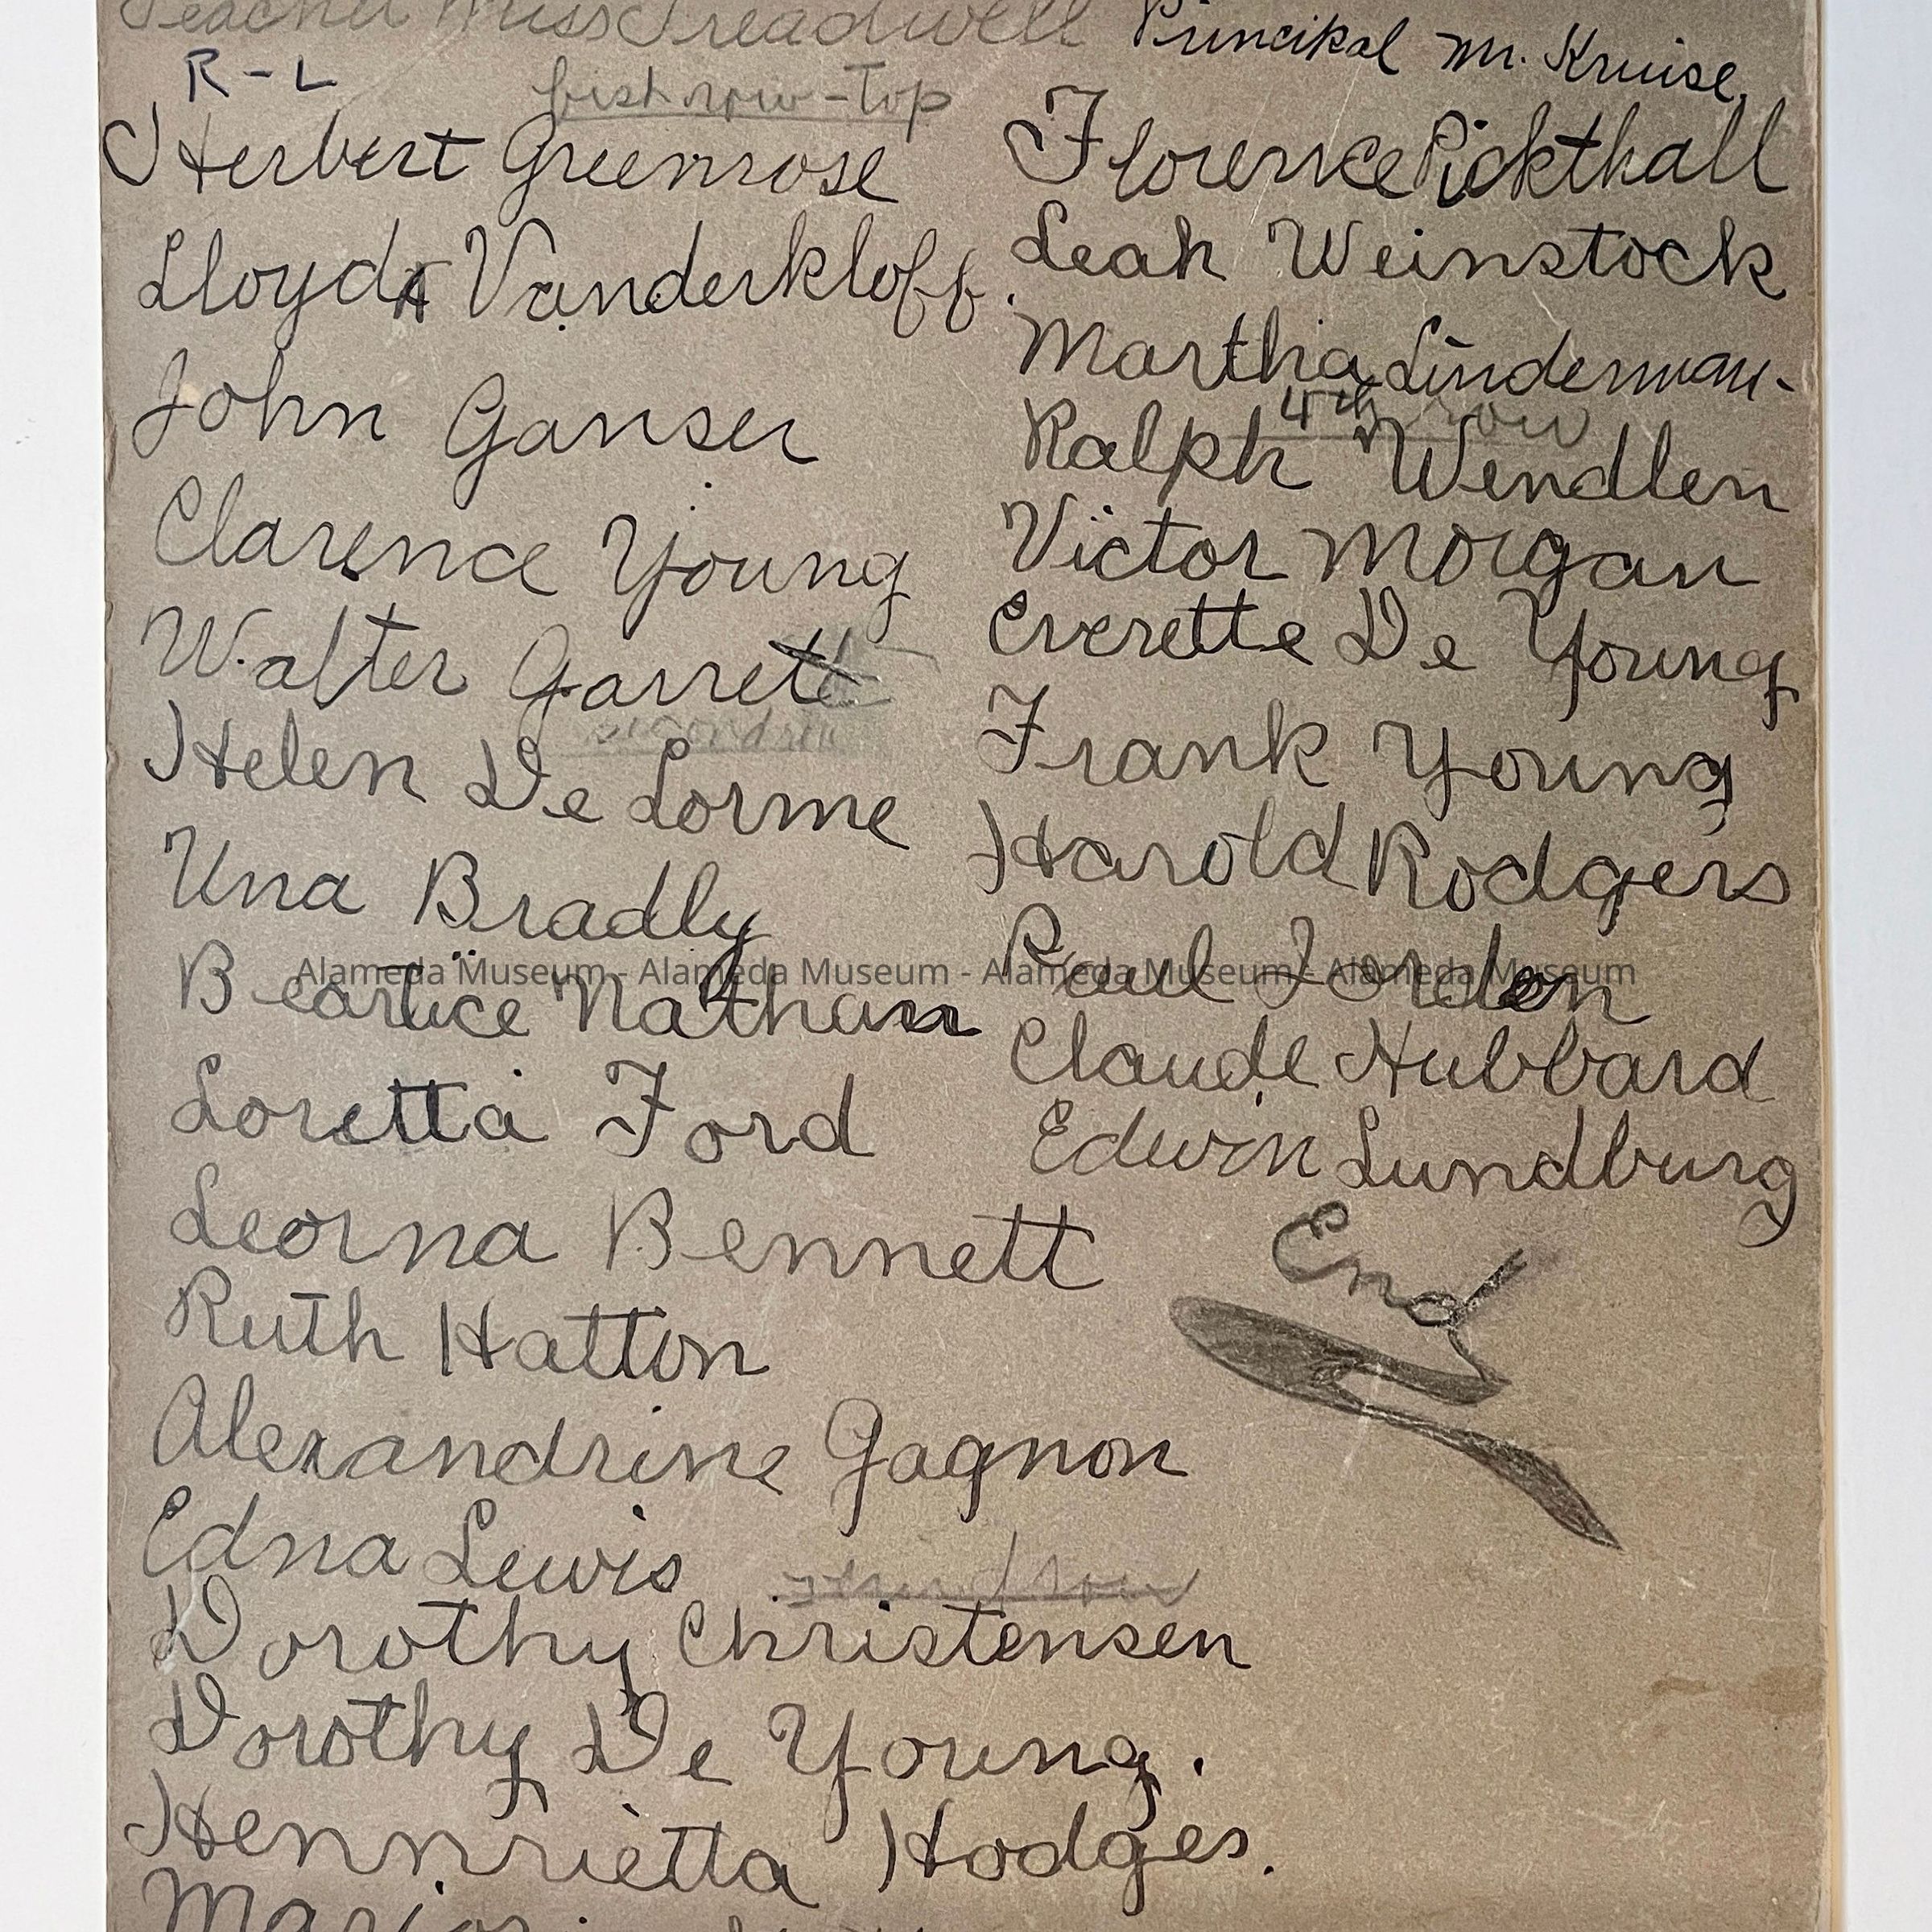 Teacher Miss Treadwell
Principal Mr. Kruise
R-L
first row-Top
Herbert Greenrose
Lloyd A Vanderkloff.
John Ganser
Clarence Young
Walter Garrett
second row
Helen De Lorme
Una Bradly
Beartice Nathan
Loretta Ford
Leorna Bennett
Ruth Hatton
Alexandrine Gagnon
Edna Lewis
Dorothy Christensen
Dorothy De Young.
Hennrietta Hodges.
Florence Pickthall
Leah Weinstock
Martha Linderman-
4th row
Ralph Wendlen
Victor Morgan
Everette De Young
Frank Young
Harold Rodgers
Paul Jorden
Claude Hubbard
Edwin Lundburg
End
Alameda Museum - Alameda Museum - Alameda Museum - Alameda Museum